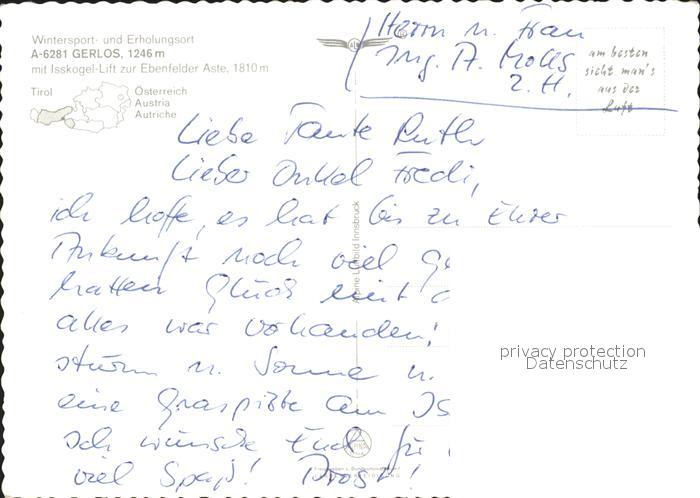 Wintersport- und Erholungsort
A-6281 GERLOS, 1246 m
mit Isskogel-Lift zur Ebenfelder Aste, 1810 m
Tirol
Österreich
Austria
Autriche
Herrn u. Frau
Ing. A.
z. H.
am besten
sieht man's
aus der
Luft
Alpine Luftbild Innsbruck
Liebe Tante Ruth
Lieber Onkel Fredi,
ich hoffe, es hat bis zu Ehrer
Ankunft noch viel
hatten Glück mit
alles war vorhanden!
sturm u. Sonne u.
eine Graspiste am IS
Ich wünsche Euch für
viel Spaß! Prost!
privacy protection
Datenschutz